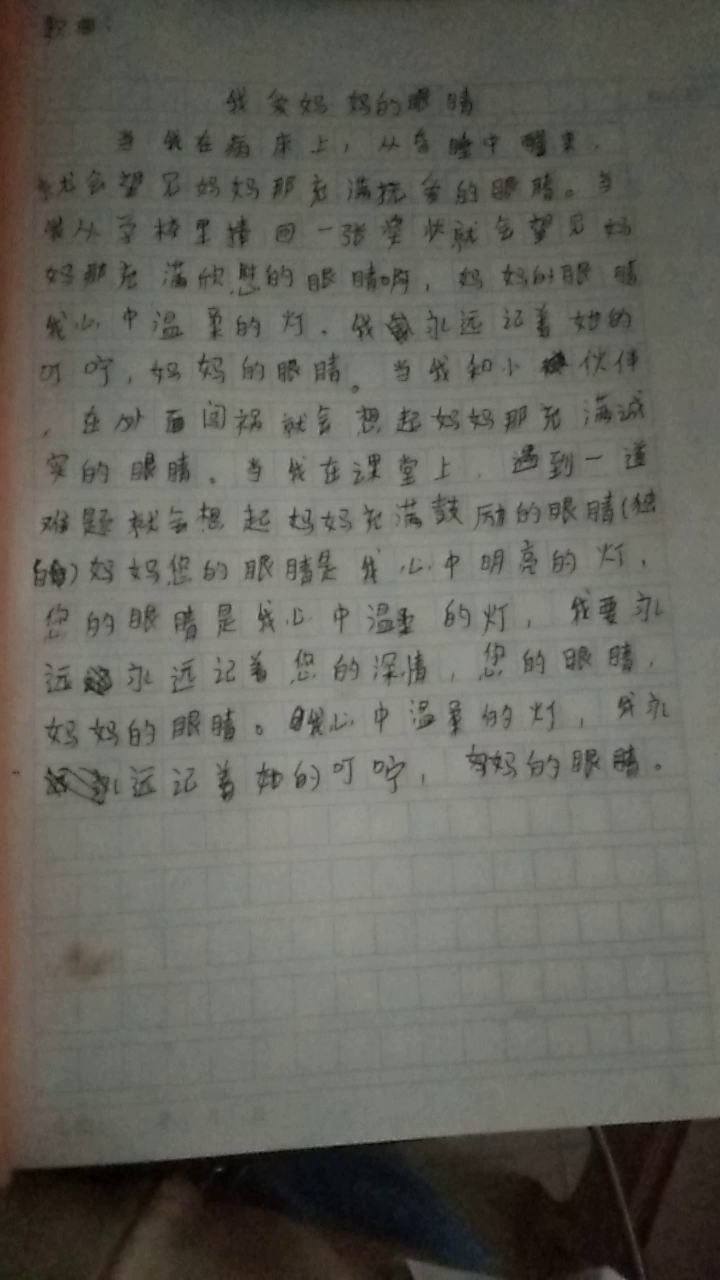 歌曲:
我爱妈妈的眼睛
当我在病床上,从昏睡中醒来,
就会望见妈妈那充满抚爱的眼睛。当
我从学校里捧回一张奖状就会望见妈
妈那充满欣慰的眼睛啊,妈妈的眼睛
我心中温柔的灯.我永远记着她的
叮咛,妈妈的眼睛。当我和小伙伴
,在外面闯祸就会想起妈妈那充满诚
实的眼睛。当我在课堂上.遇到一道
难题就会想起妈妈充满鼓励的眼睛(独
白)妈妈您的眼睛是我心中明亮的灯,
您的眼睛是我心中温柔的灯,我要永
远永远记着您的深情,您的眼睛,
妈妈的眼睛。我心中温柔的灯,我永
远记着她的叮咛,妈妈的眼睛。